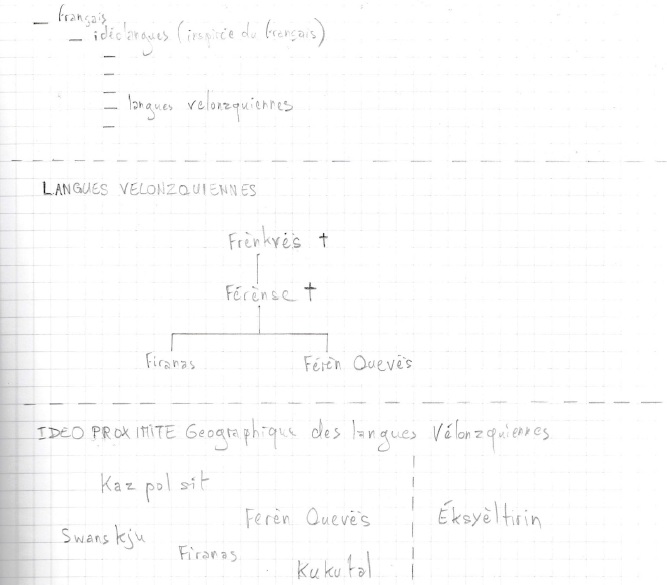 — français
— idéolangues (inspirée du français)
—
—
— langues velonzquiennes
—
LANGUES VELONZQUIENNES
Frènkvès †
Férènsc †
Firanas Férèn Quevès
IDEO PROXIMITE Geographique des langues Vélonzquiennes
Kaz pol sit
Ferèn Quevès Éksyèltirin
Swans kju
Firanas
Kukutal